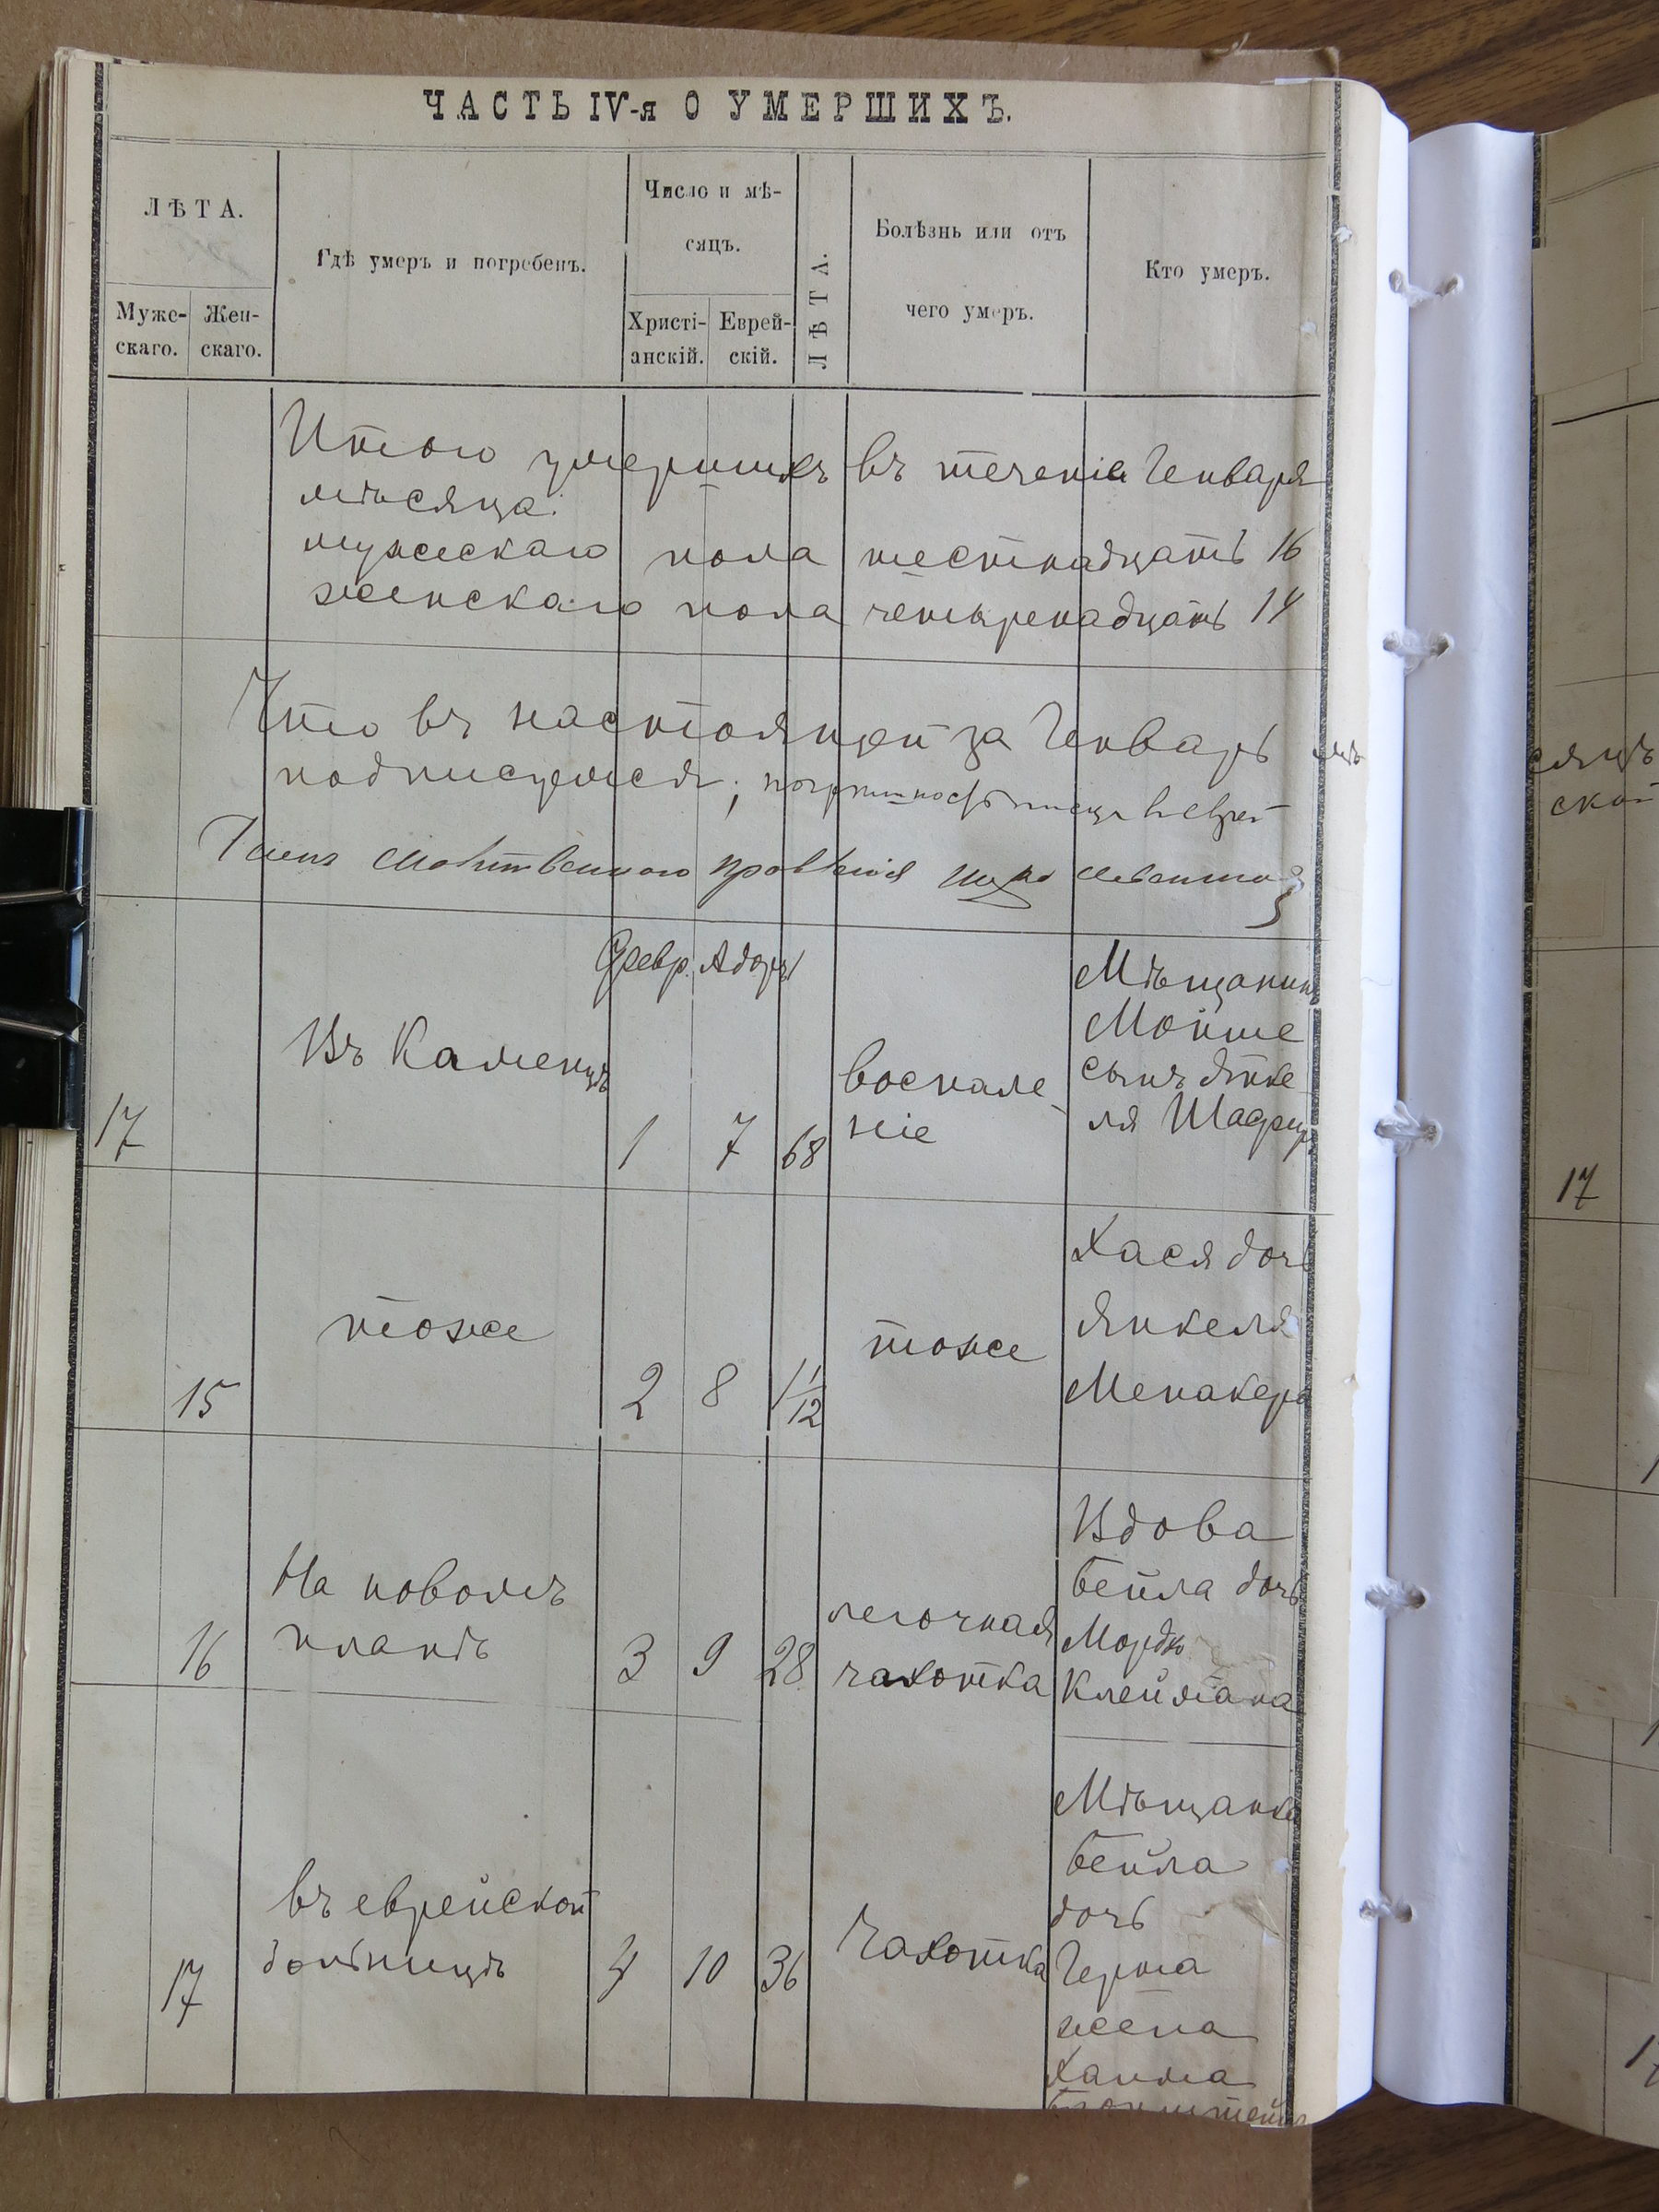 ЧАСТЬ IV-я О УМЕРШИХЪ.
ЛѢТА.
Мужс-
скаго.
Жен-
скаго.
Гдѣ умеръ и погребенъ.
Число и мѣ-
сяцъ.
Христі-
анскій.
Еврей-
скій.
ЛѢТА.
Болѣзнь или отъ
чего умеръ.
Кто умеръ.
Итого умершихъ въ теченіе Генваря
мѣсяца:
мужескаго пола шестнадцать 16
женскаго пола четырнадцать 14
Что въ настоящей за Генварь
подписуемся;
Членъ Молитвеннаго Правленія
Февр. Адоръ
17
Въ Каменцѣ
1 7 68
воспале-
ніе
Мѣщанинъ
Мойше
сынъ Янке
ля
15
тоже
2 8 1/12
тоже
Хася дочь
Янкеля
Менакера
16
На новомъ
планѣ
3 9 28
легочная
чахотка
Вдова
Бейла дочь
Мордк
Клеймана
17
въ еврейской
больницѣ
4 10 36
Чахотка
Мѣщанка
Бейла
дочь
Герша
жена
Хаима
сяцъ
ской
17